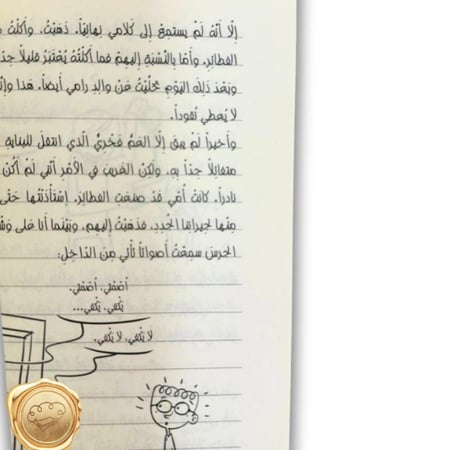 إلّا أنّهُ لَمْ يستمِعْ إلى كلامي نِهائِيّاً. ذَهَبْتُ، وأكَلْتُ
الفطائِرَ. وأمّا بِالنِّسْبَةِ إليهِمْ فما أكَلْتُهُ يُعْتَبَرُ قليلاً جِدّ
وبَعْدَ ذلِكَ اليَوْمِ تَخَلَّيْتُ عَنْ والِدِ رامي أيضاً. هذا وإنّ
لا يُعطي نُقوداً.
وأخيراً لَمْ يبقَ إلّا العَمُّ فَخْرِيُّ الّذي انتقلَ لِلبِنايةِ
متفائِلاً جدّاً بِهِ. ولكِنَّ الغَريبَ في الأمْرِ أنّني لَمْ أكُنْ
نادراً. كانَتْ أُمّي قَدْ صنعَتِ الفطائِرَ. اِسْتأذَنْتُها حَتّى
مِنْها لجيرانِنا الجُدُدِ. فذهَبْتُ إليهِم. وبَيْنَما أنا عَلى وَشْ
الجرَسِ سمِعْتُ أصواتاً تأتي مِنَ الدّاخِلِ:
أضِفْ، أضِفْني.
يَكْفي، يَكْفي...
لا يَكْفي، لا يَكْفي.